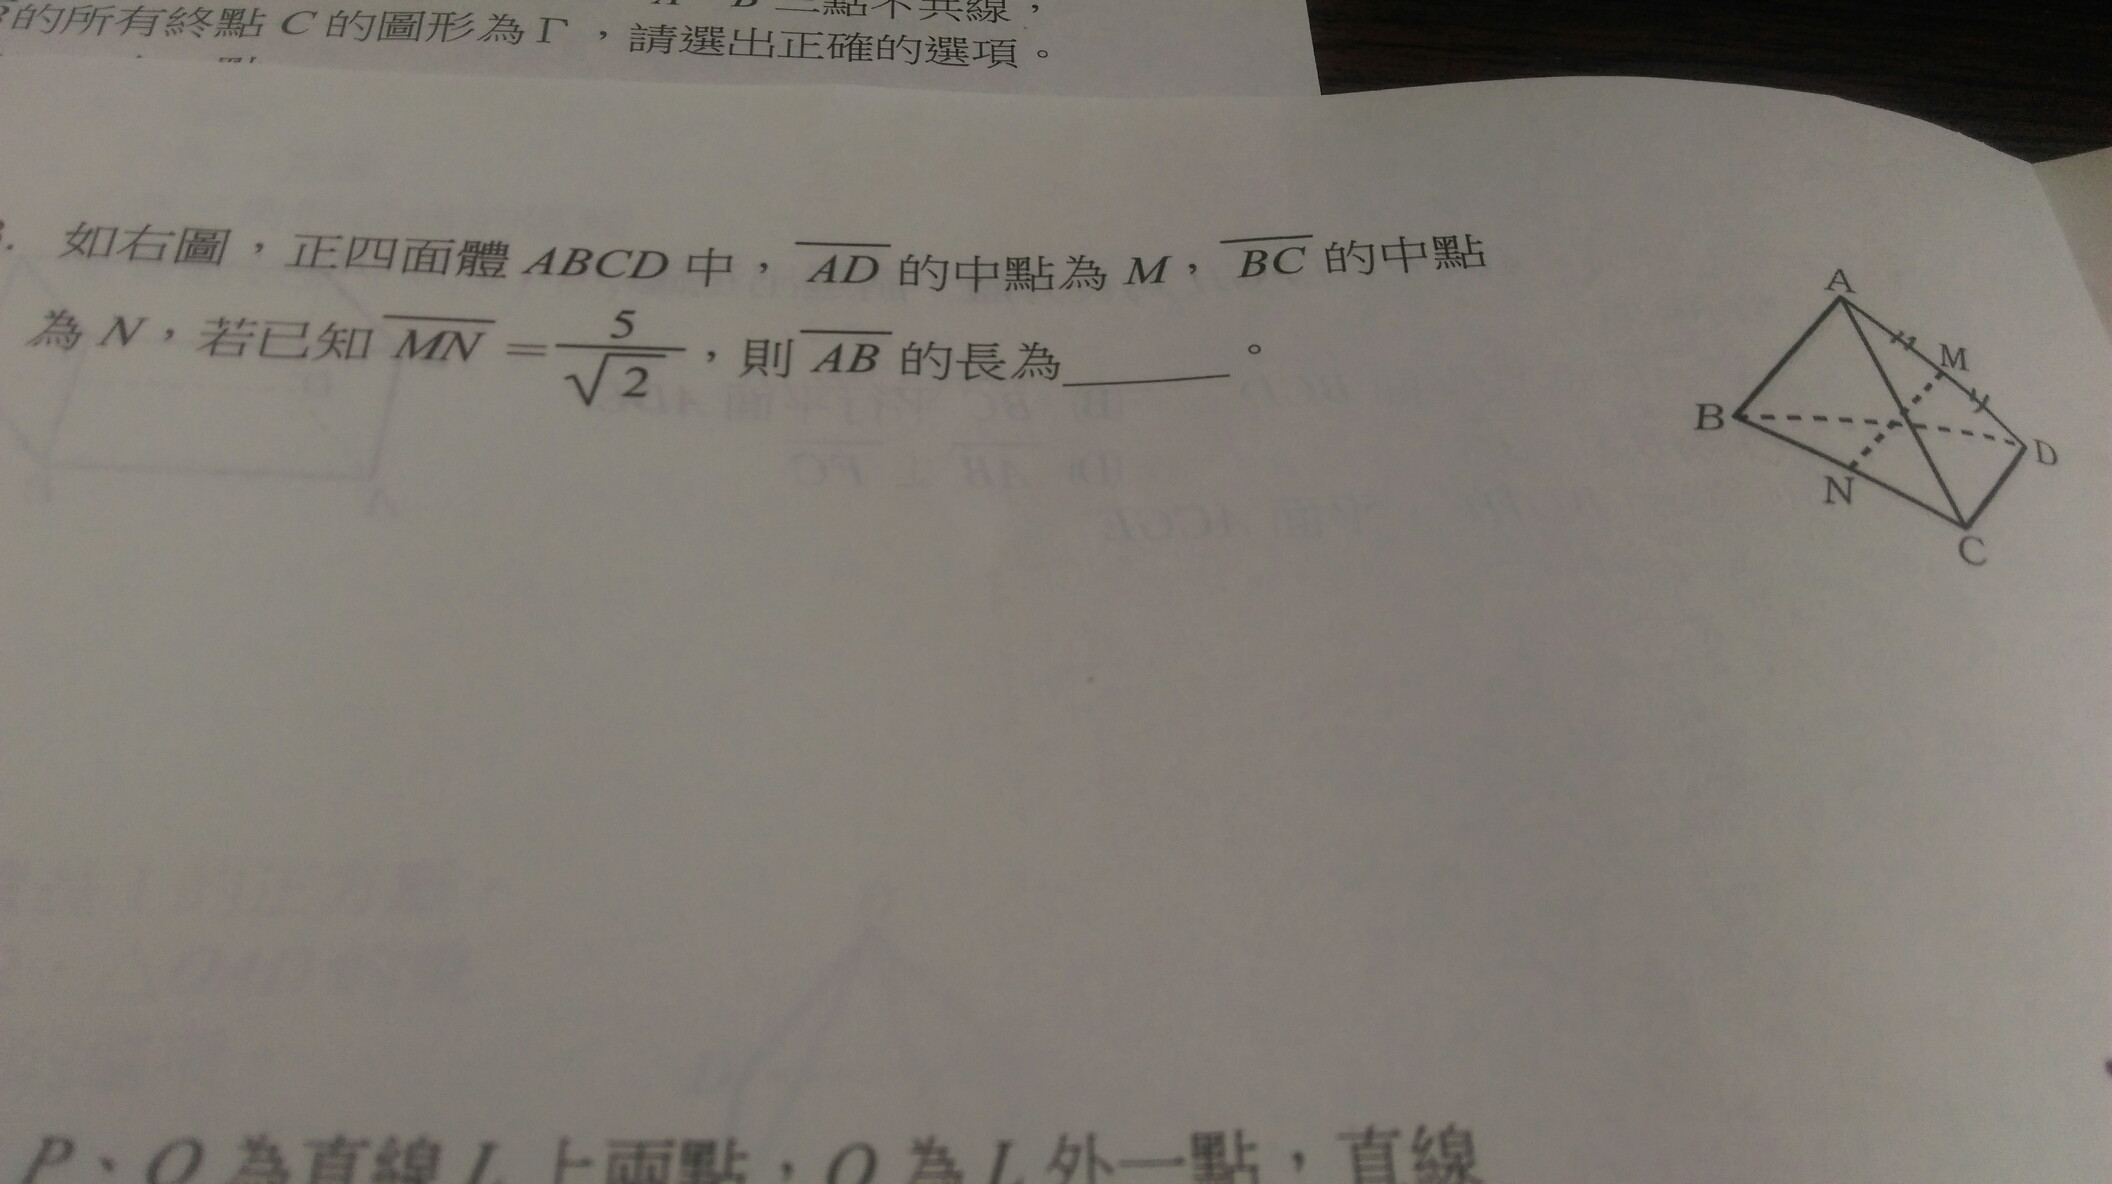 B 三點不共線，
的所有終點 C 的圖形為 Γ ，請選出正確的選項。
. 如右圖，正四面體 ABCD 中， AD 的中點為 M， BC 的中點
為 N，若已知 MN = 5/√2 ，則 AB 的長為______。
A
M
B
D
N
C
P、Q 為直線 L 上兩點，O 為 L 外一點，直線